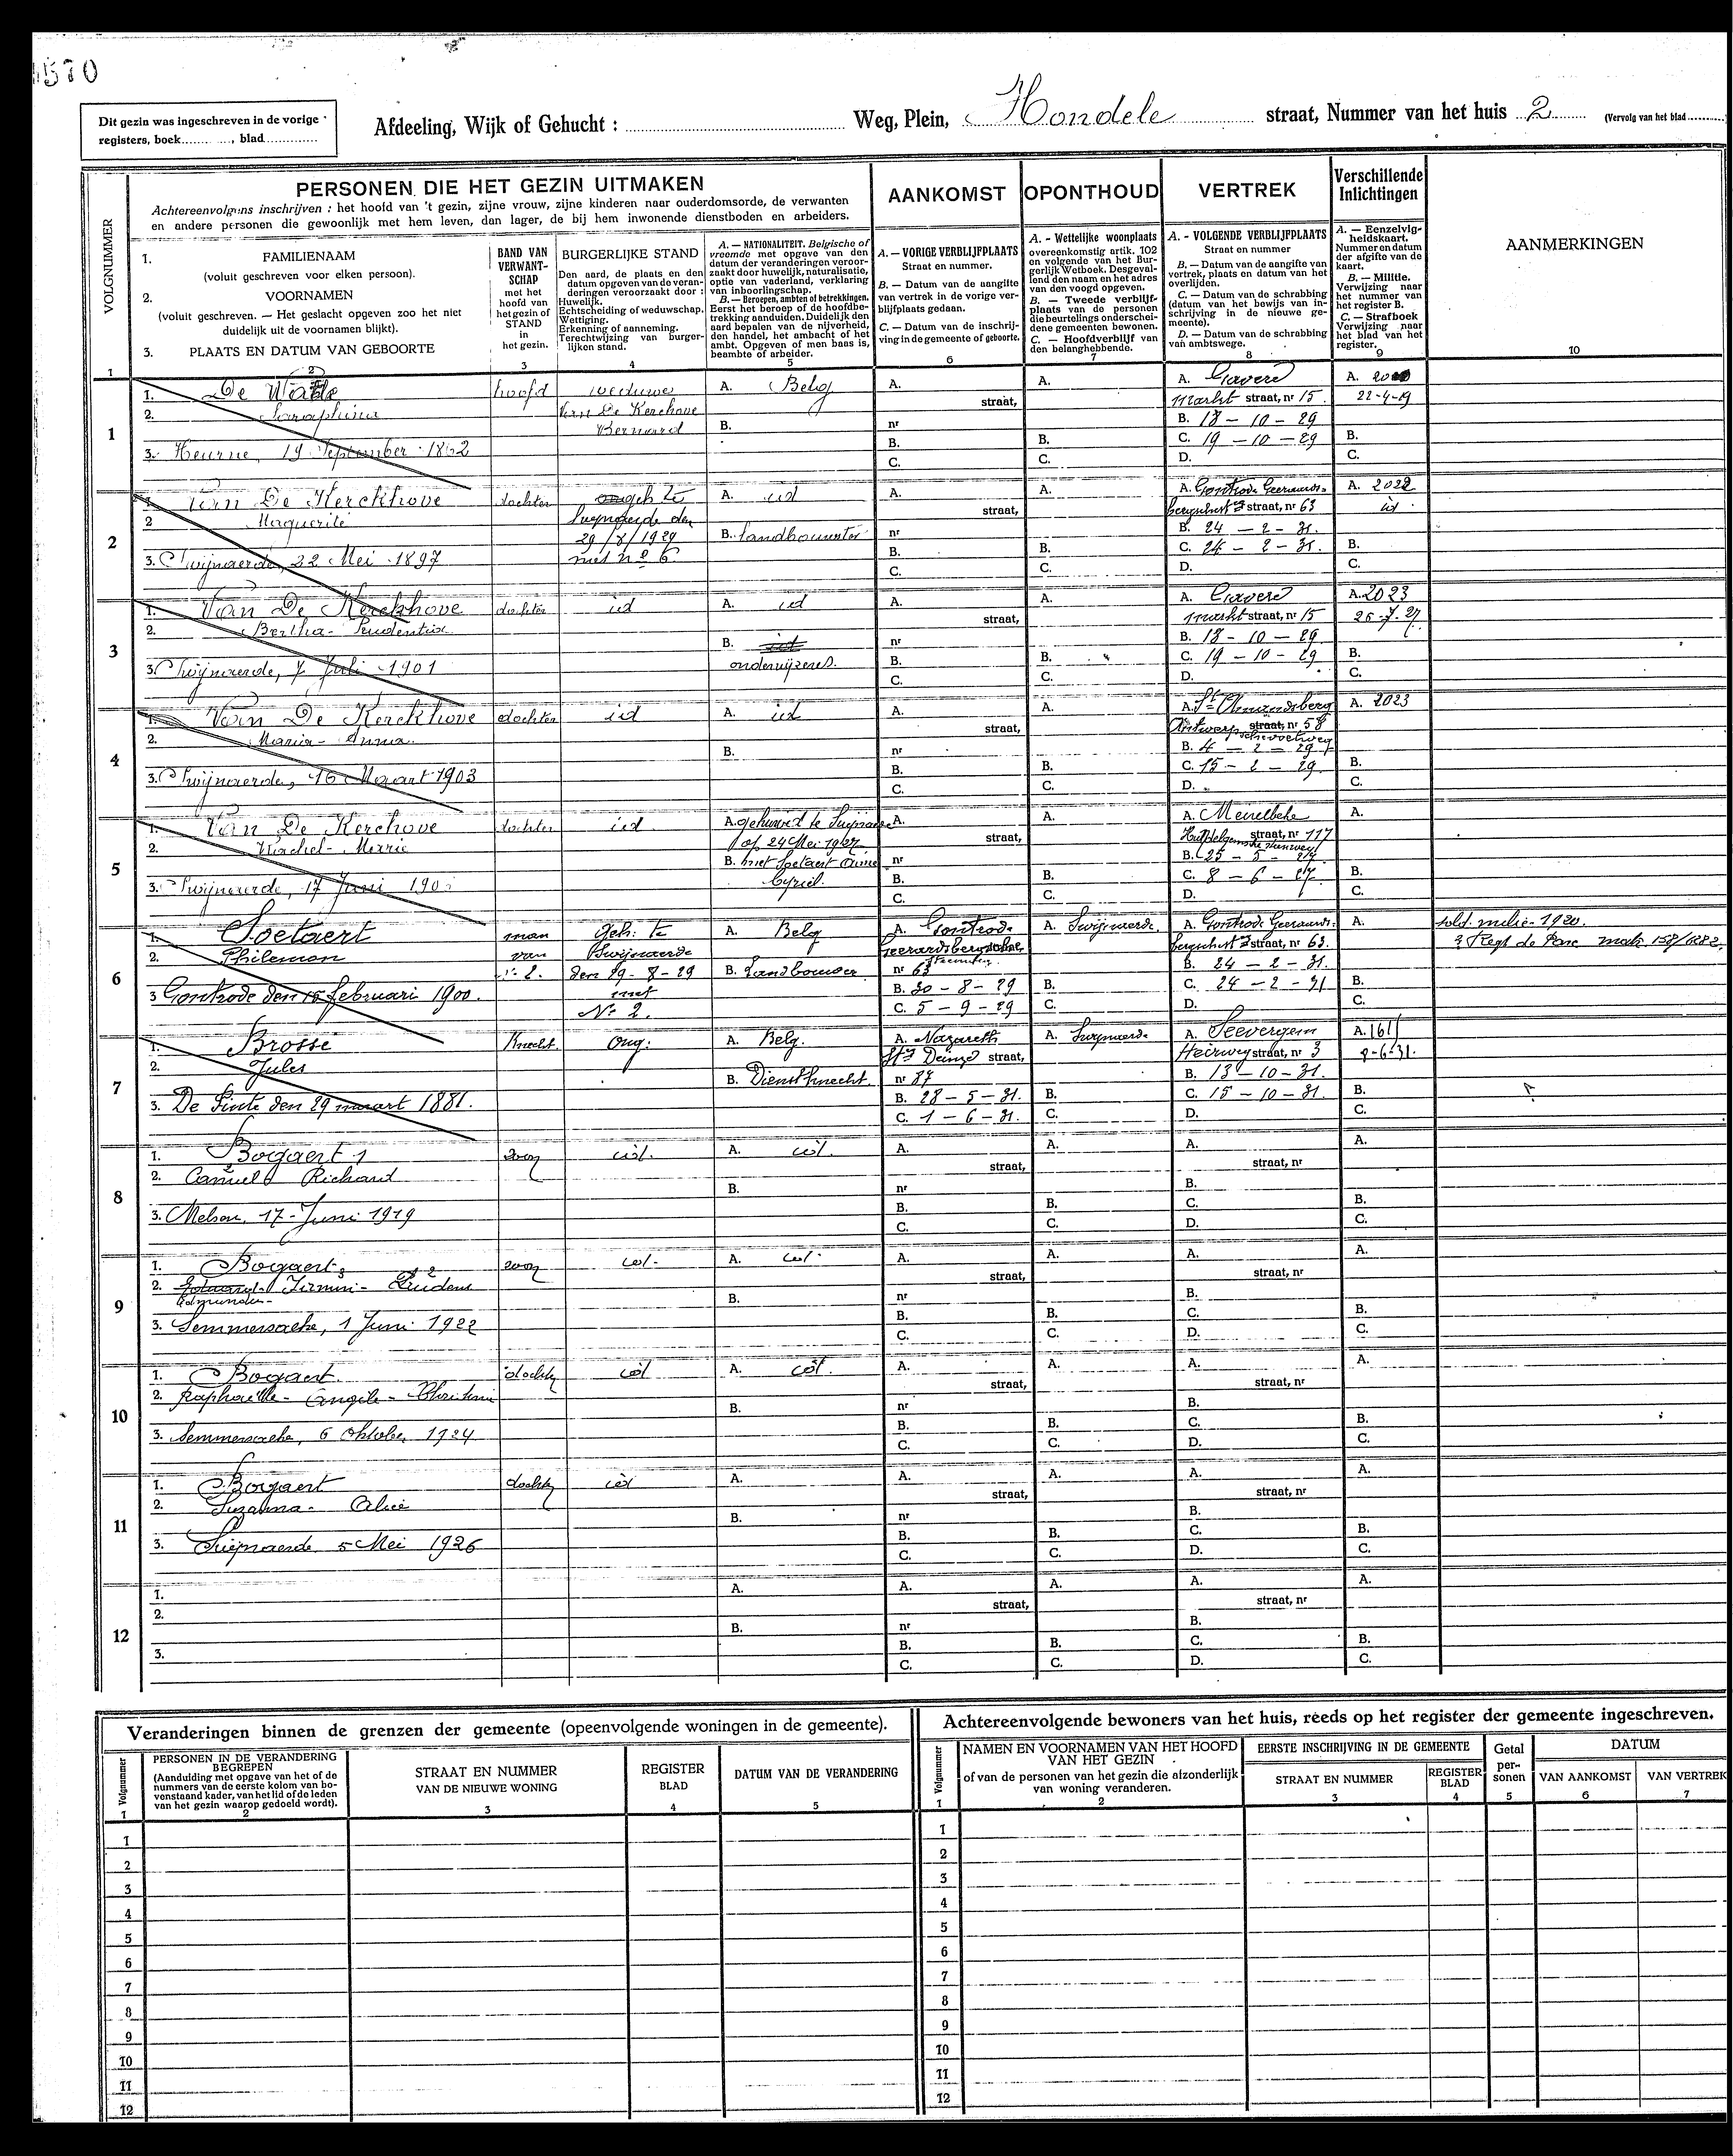 1570
Dit gezin was ingeschreven in de vorige
registers, boek............, blad..............
Afdeeling, Wijk of Gehucht : ............ Weg, Plein, Hondele straat, Nummer van het huis 2 (Vervolg van het blad..........
PERSONEN DIE HET GEZIN UITMAKEN
Achtereenvolgens inschrijven : het hoofd van 't gezin, zijne vrouw, zijne kinderen naar ouderdomsorde, de verwanten
en andere personen die gewoonlijk met hem leven, dan lager, de bij hem inwonende dienstboden en arbeiders.
AANKOMST
OPONTHOUD
VERTREK
Verschillende
Inlichtingen
AANMERKINGEN
VOLGNUMMER
1. FAMILIENAAM
(voluit geschreven voor elken persoon).
2. VOORNAMEN
(voluit geschreven. — Het geslacht opgeven zoo het niet
duidelijk uit de voornamen blijkt).
3. PLAATS EN DATUM VAN GEBOORTE
BAND VAN
VERWANT-
SCHAP
met het
hoofd van
het gezin of
STAND
in
het gezin.
BURGERLIJKE STAND
Den aard, de plaats en den
datum opgeven van de veran-
deringen veroorzaakt door :
Huwelijk.
Echtscheiding of weduwschap.
Wettiging.
Erkenning of aanneming.
Terechtwijzing van burger-
lijken stand.
A. — NATIONALITEIT. Belgische of
vreemde met opgave van den
datum der veranderingen veroor-
zaakt door huwelijk, naturalisatie,
optie van vaderland, verklaring
van inboorlingschap.
B. — Beroepen, ambten of betrekkingen.
Eerst het beroep of de hoofdbe-
trekking aanduiden. Duidelijk den
aard bepalen van de nijverheid,
den handel, het ambacht of het
ambt. Opgeven of men baas is,
beambte of arbeider.
A. — VORIGE VERBLIJFPLAATS
Straat en nummer.
B. — Datum van de aangifte
van vertrek in de vorige ver-
blijfplaats gedaan.
C. — Datum van de inschrij-
ving in de gemeente of geboorte.
A. - Wettelijke woonplaats
overeenkomstig artik. 102
en volgende van het Bur-
gerlijk Wetboek. Desgeval-
lend den naam en het adres
van den voogd opgeven.
B. — Tweede verblijf-
plaats van de personen
die beurtelings onderschei-
dene gemeenten bewonen.
C. — Hoofdverblijf van
den belanghebbende.
A. - VOLGENDE VERBLIJFPLAATS
Straat en nummer
B. — Datum van de aangifte van
vertrek, plaats en datum van het
overlijden.
C. — Datum van de schrabbing
(datum van het bewijs van in-
schrijving in de nieuwe ge-
meente).
D. — Datum van de schrabbing
van ambtswege.
A. — Eenzelvig-
heidskaart.
Nummer en datum
der afgifte van de
kaart.
B. — Militie.
Verwijzing naar
het nummer van
het register B.
C. — Strafboek
Verwijzing naar
het blad van het
register.
1 2 3 4 5 6 7 8 9 10
1
1. De Waele hoofd weduwe A. Belg A. A. A. Gavere A.
2. Seraphina Van De Kerchove straat, markt straat, nr 15 22-4-19
Bernard B. nr B. 18 - 10 - 29
3. Heurne, 19 September 1862 B. B. C. 19 - 10 - 29 B.
C. C. D. C.
2
1. Van De Kerckhove dochter geh te A. id A. A. A. Gontrode Geeraards- A. 2022
2 Marguerite Swijnaerde den straat, bergschest straat, nr 63 id
29/8/1929 B. Landbouwster nr B. 24 - 2 - 31.
3. Swijnaerde, 22 Mei 1897 met no 6. B. B. C. 24 - 2 - 31. B.
C. C. D. C.
3
1. Van De Kerckhove dochter id A. id A. A. A. Gavere A. 2023
2. Bertha - Prudentia straat, markt straat, nr 15 26-7-27
B. id nr B. 18 - 10 - 29
3. Swijnaerde, 7 Juli 1901 onderwijzeres. B. B. C. 19 - 10 - 29 B.
C. C. D. C.
4
1. Van De Kerckhove dochter id A. id A. A. A. St Amandsberg A. 2023
2. Maria - Anna straat, Antwerp straat, nr 58
B. nr B. 4 - 2 - 29
3. Swijnaerde, 16 Maart 1903 B. B. C. 15 - 2 - 29. B.
C. C. D. C.
5
1. Van De Kerchove dochter id. A. gehuwd te Swijnaerde A. A. A. Meirelbeke A.
2. Rachel - Marie op 24 Mei 1927 straat, straat, nr 117
B. met Soetaert Aimé nr B. 25 - 5 - 27
3. Swijnaerde, 17 Juni Cyriel. B. B. C. 8 - 6 - 27. B.
C. C. D. C.
6
1. Soetaert man Geh. te A. Belg A. Gontrode A. Swijnaerde A. Gontrode Geeraards- A. sold. milic- 1920.
2. Philemon van Swijnaerde Geerardsbergsche bergschest straat, nr 63.
No 2. den 29-8-29 B. Landbouwer steenweg nr 63 B. 24 - 2 - 31.
3 Gontrode den 15 februari 1900. met B. 30 - 8 - 29 B. C. 24 - 2 - 31 B.
No 2. C. 5 - 9 - 29 C. D. C.
7
1. Brossé Knecht. Ong: A. Belg. A. Nazareth A. Swijnaerde A. Seevergem A. 1611
2. Jules Stg Deinze straat, Heirweg straat, nr 3 9-6-31.
B. Dienstknecht. nr 87 B. 13 - 10 - 31.
3. De Pinte den 29 maart 1881. B. 28 - 5 - 31. B. C. 15 - 10 - 31. B.
C. 1 - 6 - 31. C. D. C.
8
1. Bogaert 1 zoon id. A. id. A. A. A. A.
2. Camiel Richard straat, straat, nr
B. nr B.
3. Melsen, 17 - Juni 1919 B. B. C. B.
C. C. D. C.
9
1. Bogaert zoon id. A. id. A. A. A. A.
2. Edouard - Firmin - Prudent straat, straat, nr
Edmundus - B. nr B.
3. Semmersaeke, 1 Juni 1922 B. B. C. B.
C. C. D. C.
10
1. Bogaert. dochter id A. id. A. A. A. A.
2. Raphaëlle - Angèle - straat, straat, nr
B. nr B.
3. Semmersaeke, 6 Oktober 1924 B. B. C. B.
C. C. D. C.
11
1. Bogaert dochter id A. A. A. A. A.
2. Suzanna - Alice straat, straat, nr
B. nr B.
3. Swijnaerde 5 Mei 1926 B. B. C. B.
C. C. D. C.
12
1. A. A. A. A. A.
2. straat, straat, nr
B. nr B.
3. B. B. C. B.
C. C. D. C.
Veranderingen binnen de grenzen der gemeente (opeenvolgende woningen in de gemeente).
Volgnummer
PERSONEN IN DE VERANDERING
BEGREPEN
(Aanduiding met opgave van het of de
nummers van de eerste kolom van bo-
venstaand kader, van het lid of de leden
van het gezin waarop gedoeld wordt).
STRAAT EN NUMMER
VAN DE NIEUWE WONING
REGISTER
BLAD
DATUM VAN DE VERANDERING
1 2 3 4 5
1
2
3
4
5
6
7
8
9
10
11
12
Achtereenvolgende bewoners van het huis, reeds op het register der gemeente ingeschreven.
Volgnummer
NAMEN EN VOORNAMEN VAN HET HOOFD
VAN HET GEZIN
of van de personen van het gezin die afzonderlijk
van woning veranderen.
EERSTE INSCHRIJVING IN DE GEMEENTE
STRAAT EN NUMMER
REGISTER
BLAD
Getal
per-
sonen
DATUM
VAN AANKOMST
VAN VERTREK
1 2 3 4 5 6 7
1
2
3
4
5
6
7
8
9
10
11
12